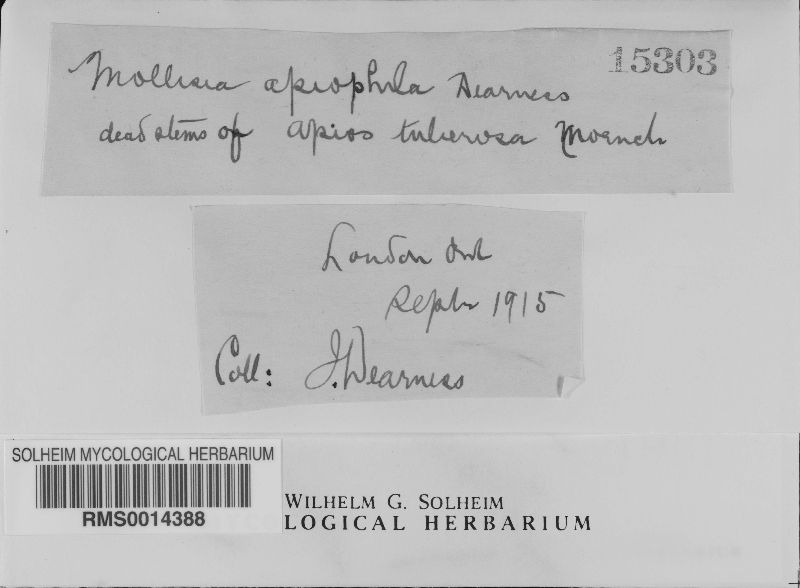 15303
Mollisia apiophila Dearness
dead stems of Apios tuberosa Moench
London Ont
Sept 1915
Coll: J. Dearness
SOLHEIM MYCOLOGICAL HERBARIUM
RMS0014388
WILHELM G. SOLHEIM
LOGICAL HERBARIUM